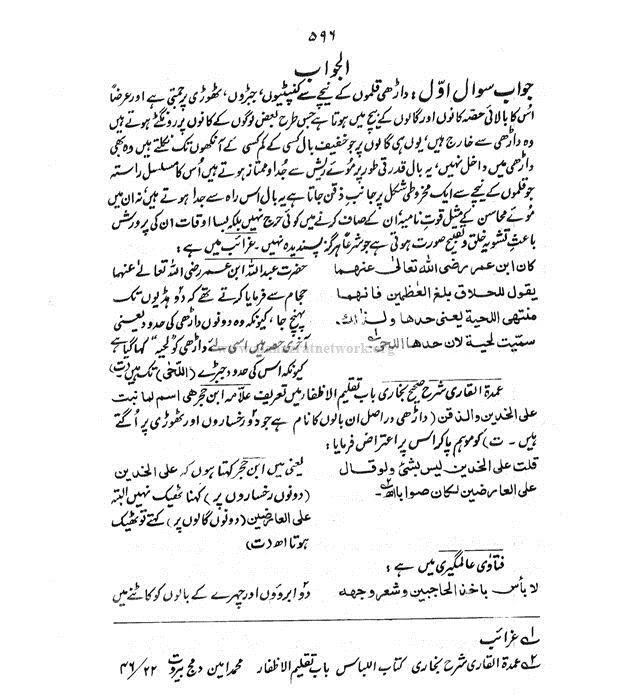 ۵۹۶
الجواب
جواب سوال اوّل : داڑھی قلموں کے نیچے سے کنپٹیوں، جبڑوں، ٹھوڑی پر جمتی ہے اور عرضاً
اُس کا بالائی حصّہ کانوں اور گالوں کے بیچ میں ہوتا ہے جس طرح بعض لوگوں کے کانوں پر رونگٹے ہوتے ہیں
وہ داڑھی سے خارج ہیں، یوں ہی گالوں پر جو خفیف بال کسی کے کم کسی کے آنکھوں تک نکلتے ہیں وہ بھی
داڑھی میں داخل نہیں، یہ بال قدرتی طور پر موئے ریش سے جُدا و ممتاز ہوتے ہیں اُس کا مسلسل راستہ
جو قلموں کے نیچے سے ایک مخروطی شکل پر جانبِ ذقن جاتا ہے یہ بال اس راہ سے جدا ہوتے ہیں نہ ان میں
موئے محاسن کے مثل قوتِ نامیہ ان کے صاف کرنے میں کوئی حرج نہیں بلکہ بسا اوقات ان کی پرورش
باعثِ تشویہ خلق و تقبیح صورت ہوتی ہے جو شرعاً ہرگز پسندیدہ نہیں۔ غرائب میں ہے :
کان ابن عمر رضی اللہ تعالیٰ عنہما
یقول للحلاق بلغ العظمین فانھما
منتھی اللحیة یعنی حدھا ولذالك
سمّیت لحیة لان حدھا اللحی۱؎
حضرت عبداللہ ابن عمر رضی اللہ تعالیٰ عنہما
حجام سے فرمایا کرتے تھے کہ دو ہڈیوں تک
پہنچ جا، کیونکہ وہ دونوں داڑھی کی حدود یعنی
آخری حصہ ہیں اسی لئے داڑھی کو "لحیہ" کہا گیا ہے
کیونکہ اس کی حدود جبڑے (اللحی) تک ہیں (ت)
عمدۃ القاری شرح صحیح بخاری باب تقلیم الاظفار میں تعریف علامہ ابن حجر ھی اسم لما نبت
علی الخدین والذقن (داڑھی دراصل ان بالوں کا نام ہے جو دو رخساروں اور ٹھوڑی پر اُگتے
ہیں۔ ت) کو موہم پاکر اس پر اعتراض فرمایا :
قلت علی الخدین لیس بشئ ولوقال
علی العارضین لکان صوابا اھ۲؎۔
یعنی میں ابن حجر کہتا ہوں کہ علی الخدین
(دونوں رخساروں پر) کہنا ٹھیک نہیں البتہ
علی العارضین (دونوں گالوں پر) کہتے تو ٹھیک
ہوتا اھ (ت)
فتاوٰی عالمگیری میں ہے :
لا بأس باخذ الحاجبین وشعر وجھہ
دو ابروؤں اور چہرے کے بالوں کو کاٹنے میں
۱؎ غرائب
۲؎ عمدۃ القاری شرح بخاری کتاب اللباس باب تقلیم الاظفار محمد امین دمج بیروت ۲۲/ ۴۶